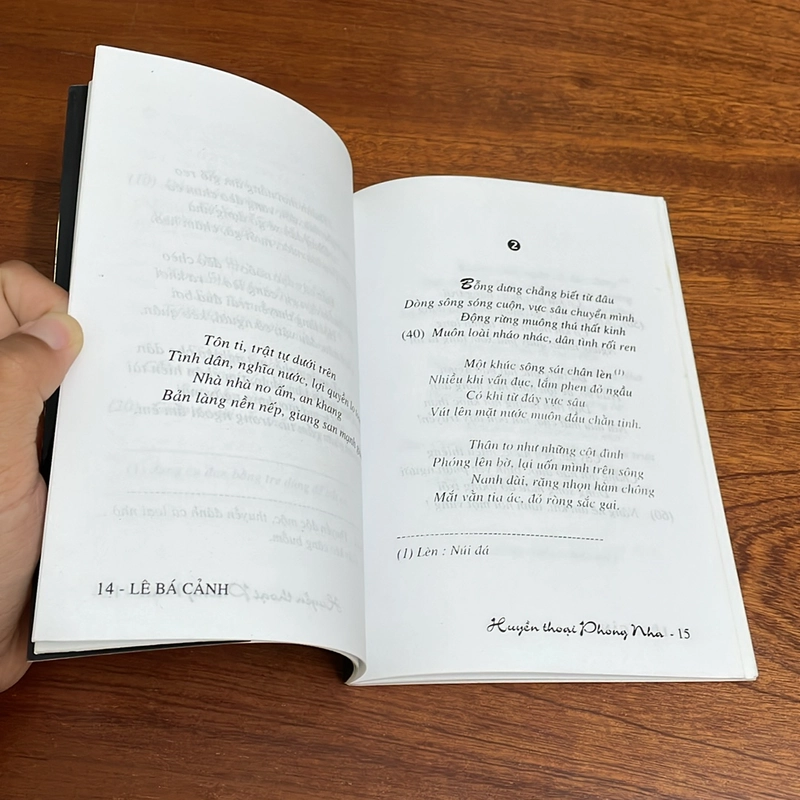 Tôn ti, trật tự dưới trên
Tình dân, nghĩa nước, lợi quyền
Nhà nhà no ấm, an khang
Bản làng nền nếp, giang san mạnh
14 - LÊ BÁ CẢNH
2
Bỗng dưng chẳng biết từ đâu
Dòng sông sóng cuộn, vực sâu chuyển mình
Động rừng muông thú thất kinh
(40) Muôn loài nháo nhác, dân tình rối ren
Một khúc sông sát chân lèn(1)
Nhiều khi vẩn đục, lắm phen đỏ ngầu
Có khi từ đáy vực sâu
Vút lên mặt nước muôn đầu chằn tinh.
Thân to như những cột đình
Phóng lên bờ, lại uốn mình trên sông
Nanh dài, răng nhọn hàm chông
Mắt vằn tia ác, đỏ ròng sắc gai.
(1) Lèn : Núi đá
Huyền thoại Phong Nha - 15